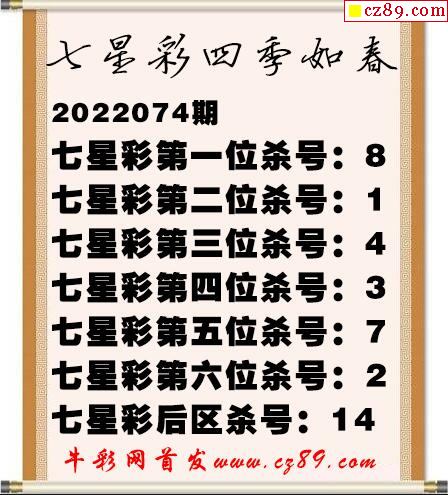 cz89.com
七星彩四季如春
2022074期
七星彩第一位杀号：8
七星彩第二位杀号：1
七星彩第三位杀号：4
七星彩第四位杀号：3
七星彩第五位杀号：7
七星彩第六位杀号：2
七星彩后区杀号：14
牛彩网首发www.cz89.com